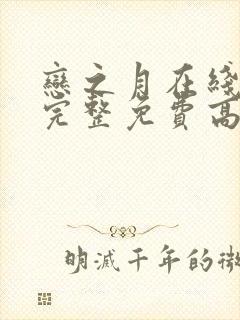 戀之月在綫
完整免費高
明滅千年的微